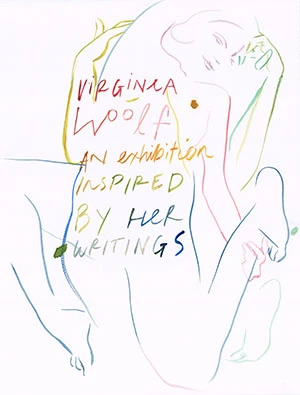 VIRGINIA
Woolf
AN exhibition
INSPIRED
BY Her
WRITINGS